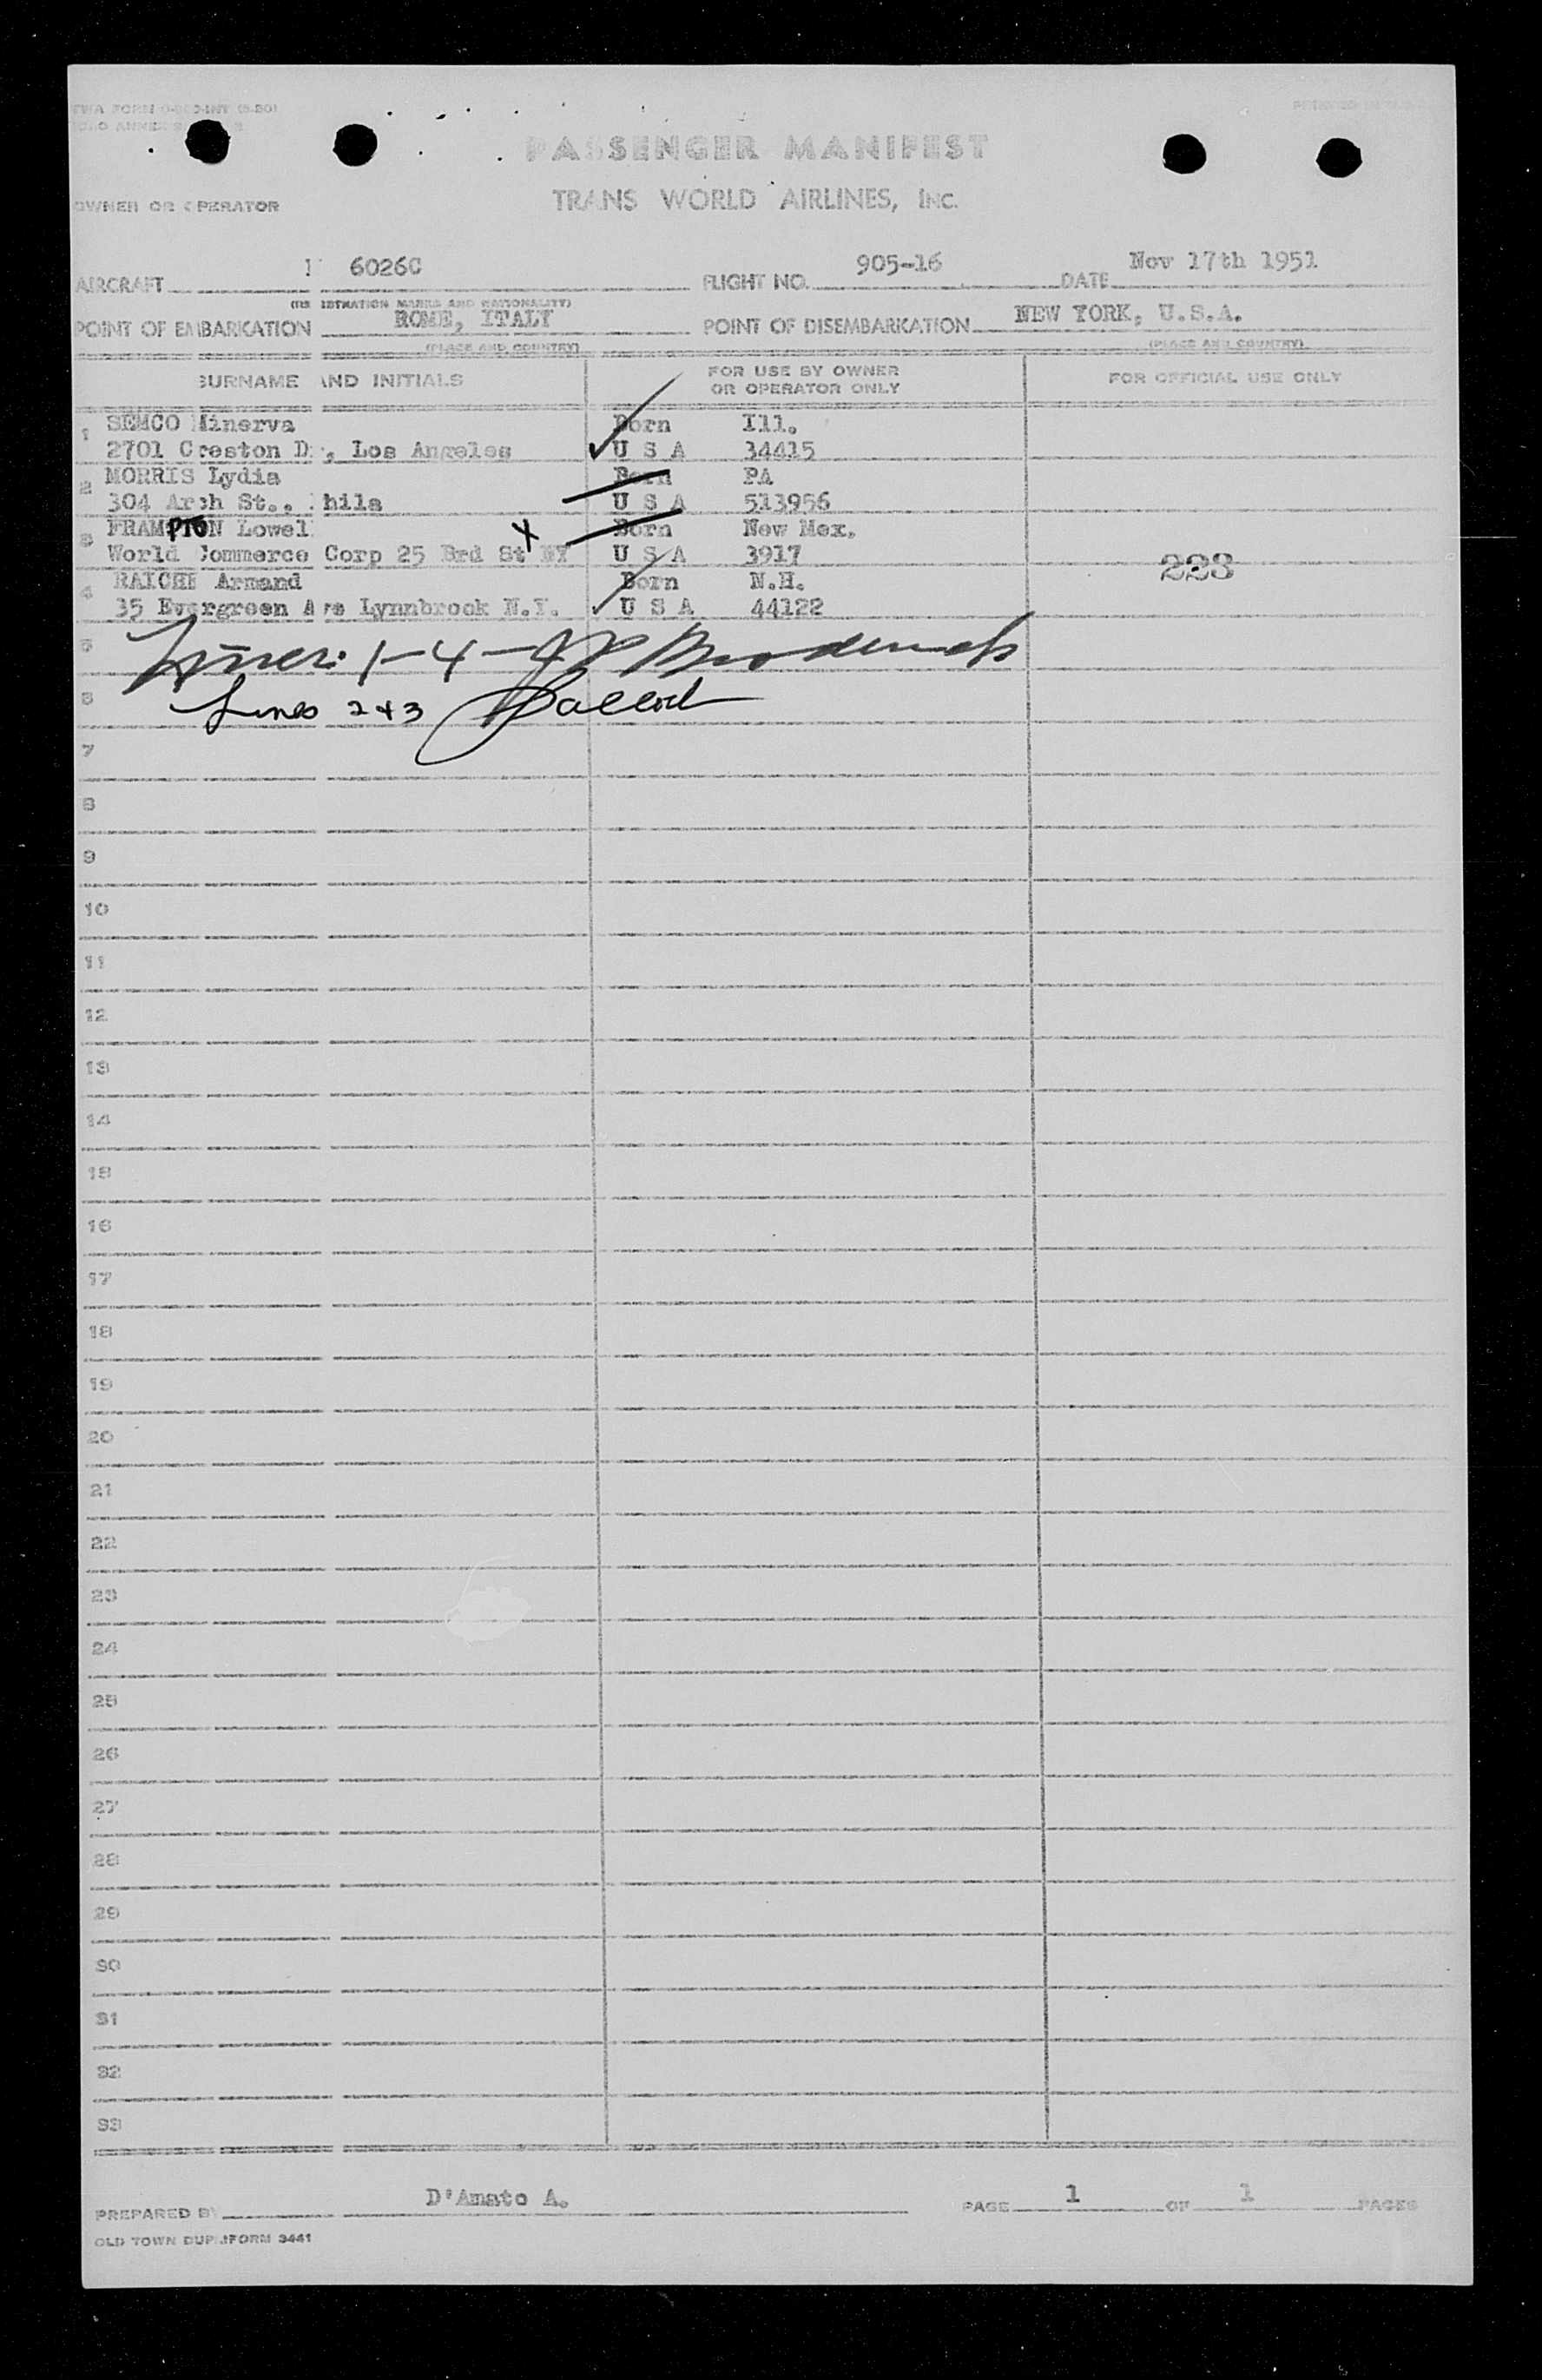 PASSENGER MANIFEST
OWNER OR OPERATOR TRANS WORLD AIRLINES, INC.
AIRCRAFT 6026C FLIGHT NO. 905-16 DATE Nov 17th 1951
(REGISTRATION MARKS AND NATIONALITY)
POINT OF EMBARKATION ROME, ITALY POINT OF DISEMBARKATION NEW YORK, U.S.A.
(PLACE AND COUNTRY) (PLACE AND COUNTRY)
SURNAME AND INITIALS FOR USE BY OWNER OR OPERATOR ONLY FOR OFFICIAL USE ONLY
1 SEMCO Minerva Born Ill.
2701 Creston Dr, Los Angeles U S A 34415
2 MORRIS Lydia Born PA
304 Arch St., Phila U S A 513956
3 FRAMPTON Lowel Born New Mex.
World Commerce Corp 25 Brd St NY X U S A 3917 223
4 RAICHE Armand Born N.H.
35 Evergreen Ave Lynnbrook N.Y. U S A 44122
5 Lines: 1-4-
6 Lines 2 & 3
7
8
9
10
11
12
13
14
15
16
17
18
19
20
21
22
23
24
25
26
27
28
29
30
31
32
33
PREPARED BY D'Amato A. PAGE 1 OF 1 PAGES
OLD TOWN DUPLIFORM 3441